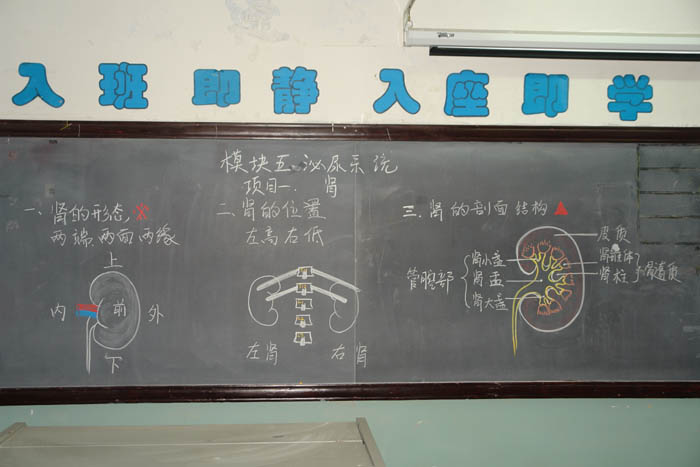 入班即静 入座即学
模块五.泌尿系统
项目一. 肾
一、肾的形态,
两端.两面.两缘
上
内 前 外
下
二.肾的位置
左高右低
左肾 右肾
三.肾的剖面结构
管腔部
肾小盏
肾盂
肾大盏
皮质
肾锥体
肾柱
肾髓质